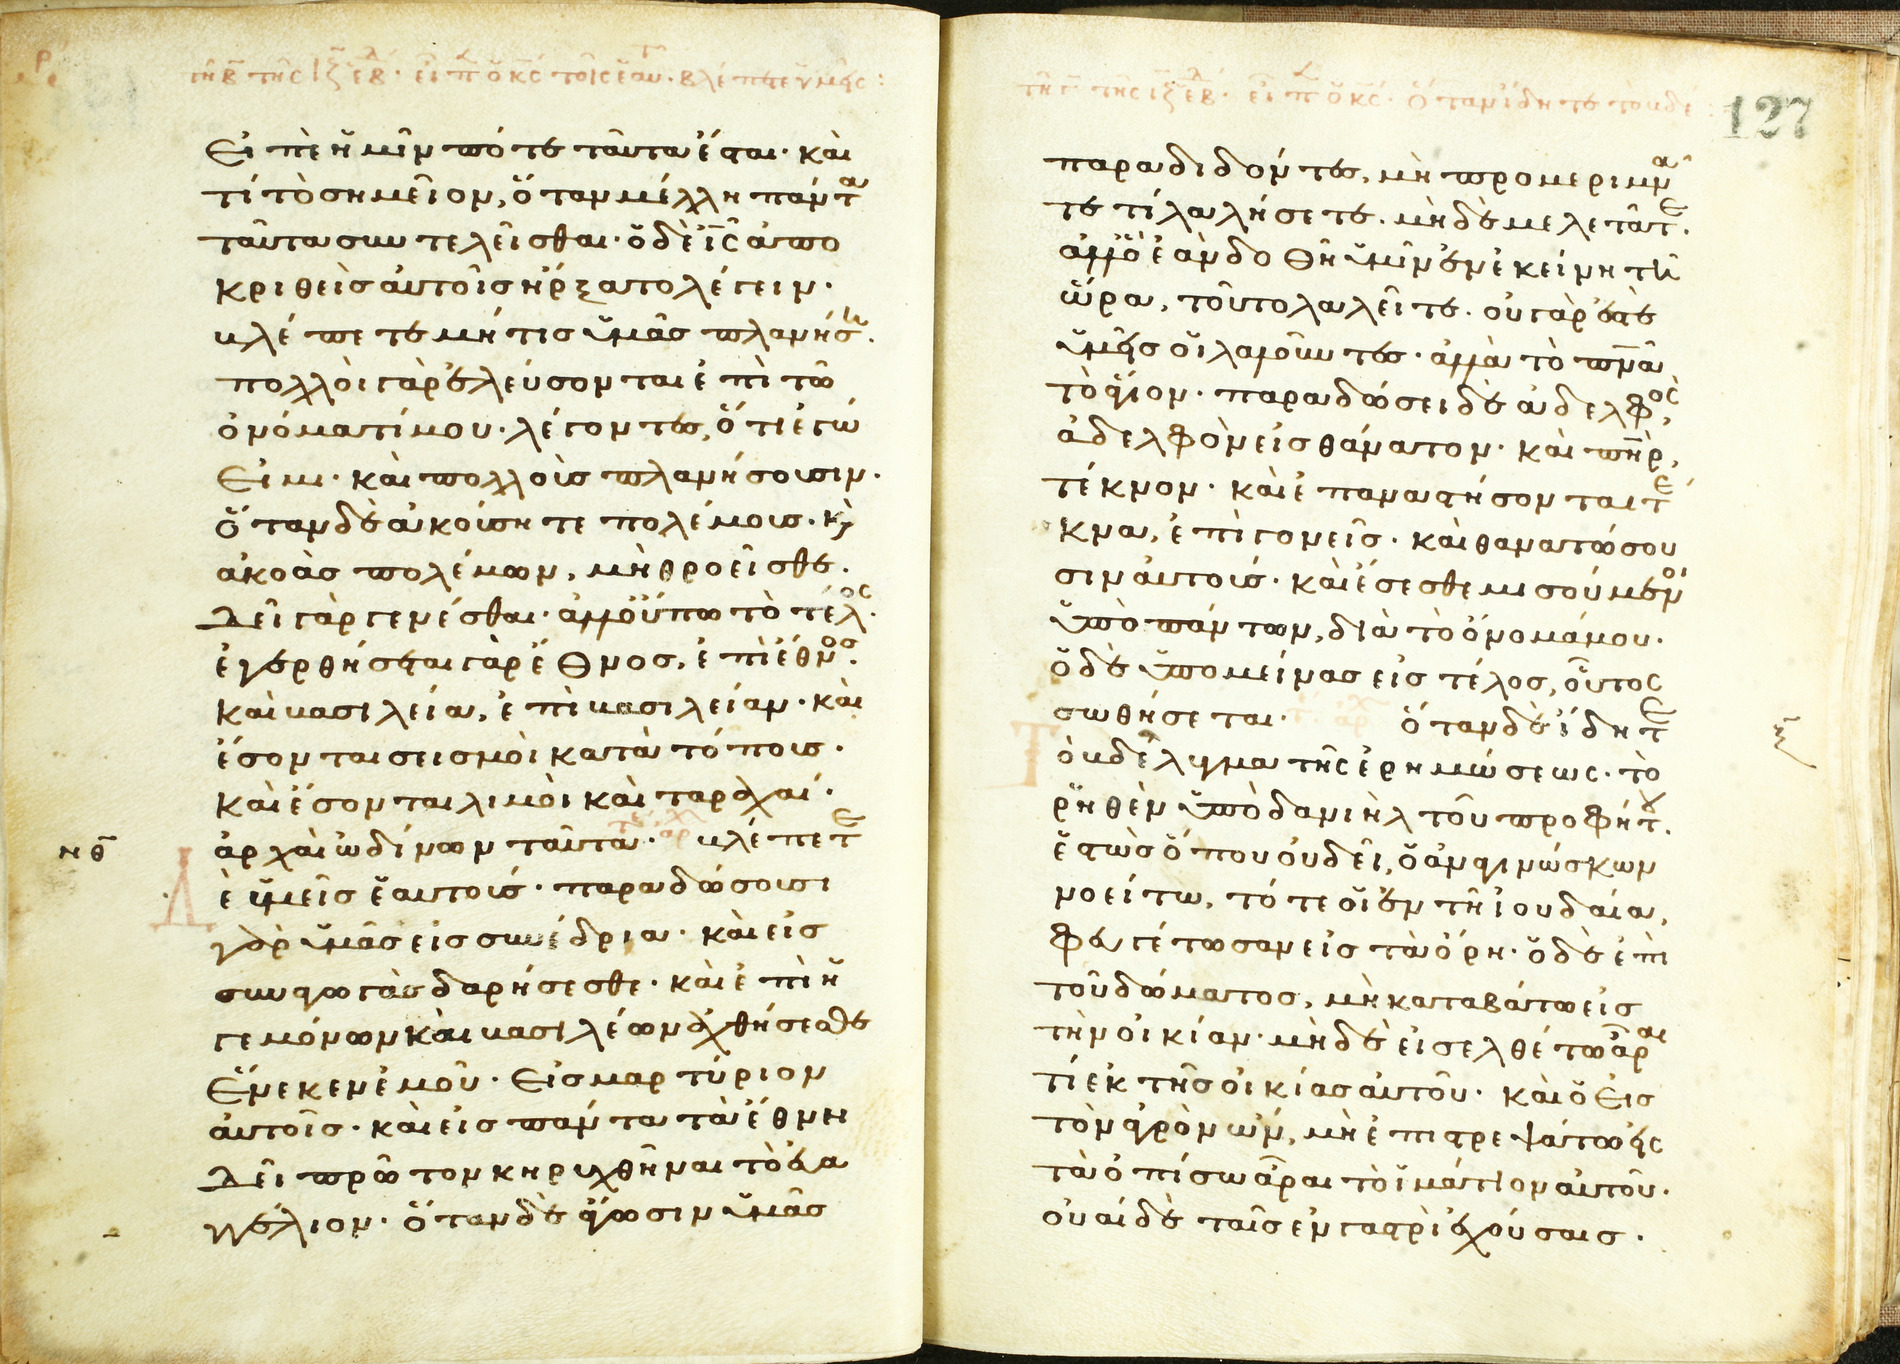 τῆ β̄ τῆς ιζ ἑβ · εἶπ ὁ κ̅ς τοῖς ἑαυ τ · βλέπετε ὑμεῖς :
Εἰπὲ ἡμῖν πότε ταῦτα ἔσται · καὶ
τί τὸ σημεῖον, ὅταν μέλλη πάντα
ταῦτα συντελεῖσθαι · ὁ δὲ ι̅ς ἀπο
κριθεὶς αὐτοῖς ἤρξατο λέγειν ·
βλέπετε μή τις ὑμᾶς πλανήση ·
πολλοὶ γὰρ ἐλεύσονται ἐπὶ τῶ
ὀνόματί μου · λέγοντες, ὅτι ἐγώ
Εἰμι · καὶ πολλοὺς πλανήσουσιν ·
ὅταν δὲ ἀκούσητε πολέμους · κ̀
ἀκοὰς πολέμων, μὴ θροεῖσθε ·
Δεῖ γὰρ γενέσθαι · ἀλλ' οὔπω τὸ τέλος ·
ἐγερθήσεται γὰρ ἔθνος, ἐπὶ ἔθνος ·
καὶ βασιλεία, ἐπὶ βασιλείαν · καὶ
ἔσονται σεισμοὶ κατὰ τόπους ·
καὶ ἔσονται λιμοὶ καὶ ταραχαί ·
ἀρχαὶ ὠδίνων ταῦτα · βλέπετ
ηθ
ὲ ὑμεῖς ἑαυτούς · παραδώσουσι
γὰρ ὑμᾶς εἰς συνέδρια · καὶ εἰς
συναγωγὰς δαρήσεσθε · καὶ ἐπὶ ἡ
γεμόνων καὶ βασιλέων ἀχθήσεσθε
Ἕνεκεν ἐμοῦ · Εἰς μαρτύριον
αὐτοῖς · καὶ εἰς πάντα τὰ ἔθνη
Δεῖ πρῶτον κηρυχθῆναι τὸ εὐα
γγέλιον · ὅταν δὲ ἄγωσιν ὑμᾶς
127
τῆ γ̄ τῆς ιζ ἑβ · εἶπ ὁ κ̅ς · ὅταν ἴδητε το βδέ
παραδιδόντες, μὴ προμεριμνᾶ
τε τί λαλήσετε · μὴδὲ μελετᾶτε ·
ἀλλ' ὃ ἐὰν δοθῆ ὑμῖν ἐν ἐκείνη τῆ
ὥρα, τοῦτο λαλεῖτε · οὐ γάρ ἐστε
ὑμεῖς οἱ λαλοῦντες · ἀλλὰ τὸ πν̅α
τὸ ἅγιον · παραδώσει δὲ ἀδελφὸς,
ἀδελφὸν εἰς θάνατον · καὶ πη̅ρ,
τέκνον · καὶ ἐπαναστήσονται τέ
κνα, ἐπὶ γονεῖς · καὶ θανατώσου
σιν αὐτούς · καὶ ἔσεσθε μισούμενοι
ὑπὸ πάντων, διὰ τὸ ὄνομά μου ·
ὁ δὲ ὑπομείνας εἰς τέλος, οὗτος
σωθήσεται · ὅταν δὲ ἴδητε
Τὸ βδέλυγμα τῆς ἐρημώσεως · τὸ
ῥηθὲν ὑπὸ δανιὴλ τοῦ προφήτου ·
ἑστὼς ὅπου οὐ δεῖ, ὁ ἀναγινώσκων
νοείτω, τότε οἱ ἐν τῆ ἰουδαία,
φευγέτωσαν εἰς τὰ ὄρη · ὁ δὲ ἐπὶ
τοῦ δώματος, μὴ καταβάτω εἰς
τὴν οἰκίαν · μὴδὲ εἰσελθέτω ἆραι
τί ἐκ τῆς οἰκίας αὐτοῦ · καὶ ὁ Εἰς
τὸν ἀγρὸν ὤν, μὴ ἐπιστρεψάτω εἰς
τὰ ὀπίσω ἆραι τὸ ἱμάτιον αὐτοῦ ·
οὐαί δὲ ταῖς ἐν γαστρὶ ἐχούσαις ·